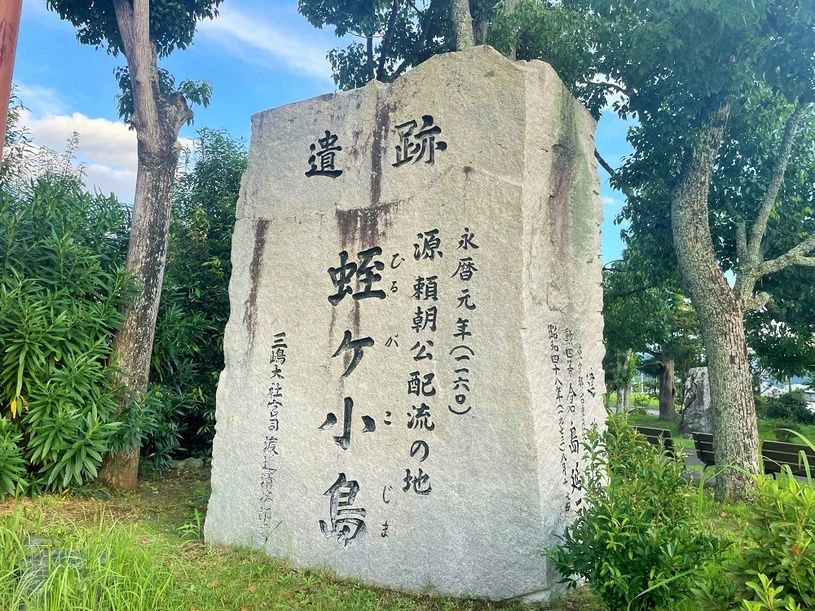 遺跡
永暦元年(一一六〇)
源頼朝公配流の地
蛭ケ小島
ひるがこじま
三嶋大社宮司
昭和四十八年(一九七三)八月